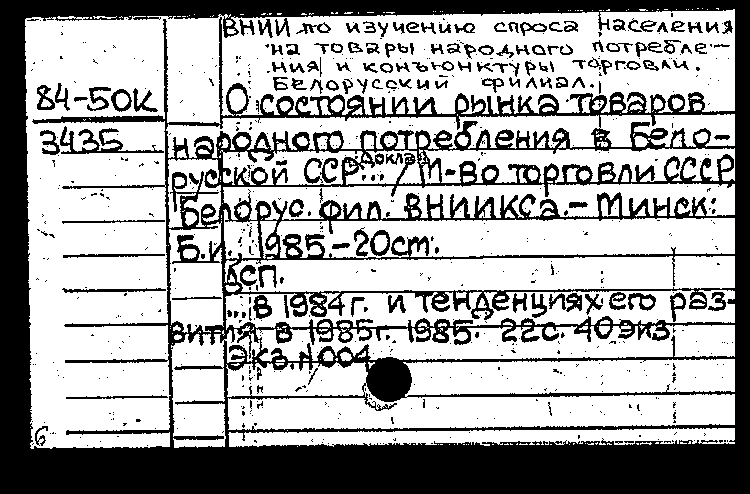 ВНИИ по изучению спроса населения
на товары народного потребле-
ния и конъюнктуры торговли.
Белорусский филиал.
84-50К
О состоянии рынка товаров
3435
народного потребления в Бело-
русской ССР... [Доклад] М-во торговли СССР,
Белорус. фил. ВНИИКСа.- Минск:
Б.и., 1985.-20см.
ДСП.
... в 1984г. и тенденциях его раз-
вития в 1985г. 1985. 22с. 40экз.
Экз.N004
6